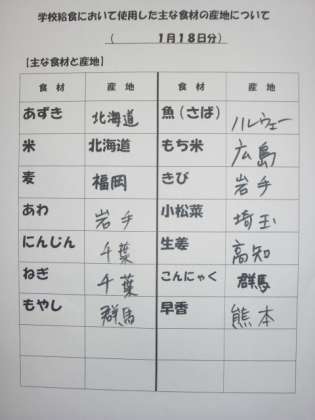 学校給食において使用した主な食材の産地について
( 1月18日分)
【主な食材と産地】
食 材 産 地 食 材 産 地
あずき 北海道 魚(さば) ノルウェー
米 北海道 もち米 広島
麦 福岡 きび 岩手
あわ 岩手 小松菜 埼玉
にんじん 千葉 生姜 高知
ねぎ 千葉 こんにゃく 群馬
もやし 群馬 早香 熊本